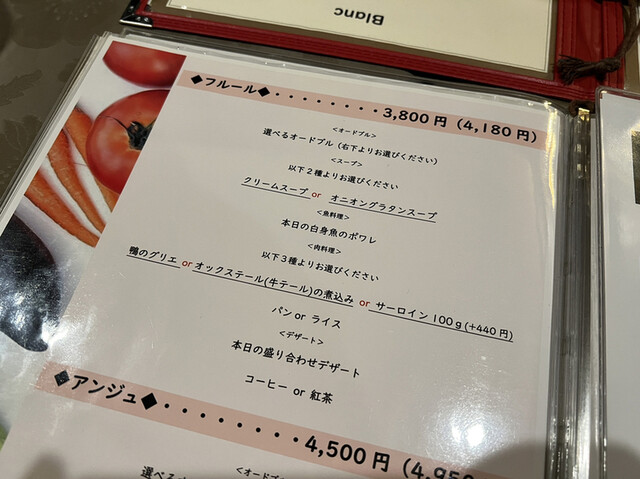 Blanc
◆フルール◆・・・・・・・・3,800円（4,180円）
<オードブル>
選べるオードブル（右下よりお選びください）
<スープ>
以下２種よりお選びください
クリームスープ or オニオングラタンスープ
<魚料理>
本日の白身魚のポワレ
<肉料理>
以下３種よりお選びください
鴨のグリエ or オックステール(牛テール)の煮込み or サーロイン100g(+440円)
パン or ライス
<デザート>
本日の盛り合わせデザート
コーヒー or 紅茶
◆アンジュ◆・・・・・・・・4,500円（4,950
<オードブル
選べるオ